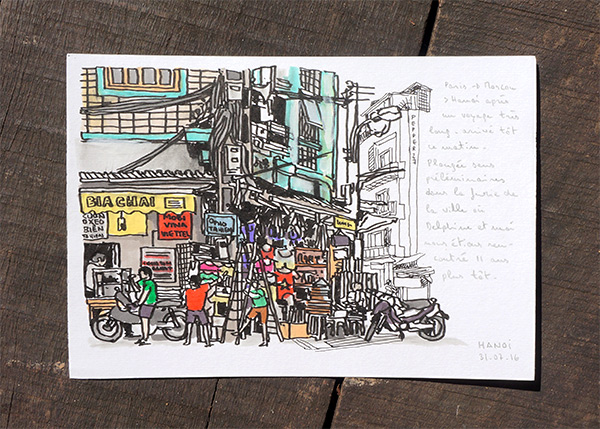 BIA CHAI
CUỐN
BIÊN
MOBI
VINA
VIETTEL
POPPER
Paris → Moscou
→ Hanoi après
un voyage très
long. arrivé tôt
ce matin.
Plongée sans
préliminaires
dans la furie de
la ville où
Delphine et moi
nous étions ren-
contré 11 ans
plus tôt.
HANOi
31.07.16